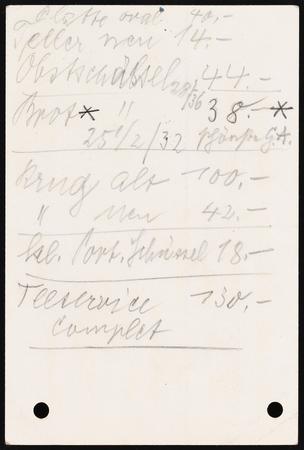 Platte oval 40.-
Teller neu 14.-
Obstschüssel 44.-
Brot * " 38.- *
25 1/2 / 32
Krug alt 100.-
" neu 42.-
Port. Schüssel 18.-
Teeservice 130.-
Complet